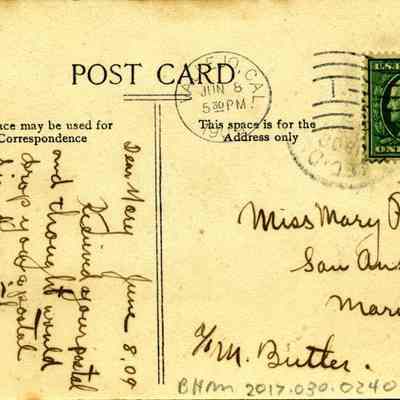 POST CARD
VALLEJO, CAL.
JUN 8
5 30 PM.
19
U.S.
ace may be used for
Correspondence
This space is for the
Address only
June 8. 09
Dear Mary
Recieved your postal
and thought would
drop you a postal
Miss Mary
San Ans
Mar
c/o M. Butler.
BHM 2017.030.0240